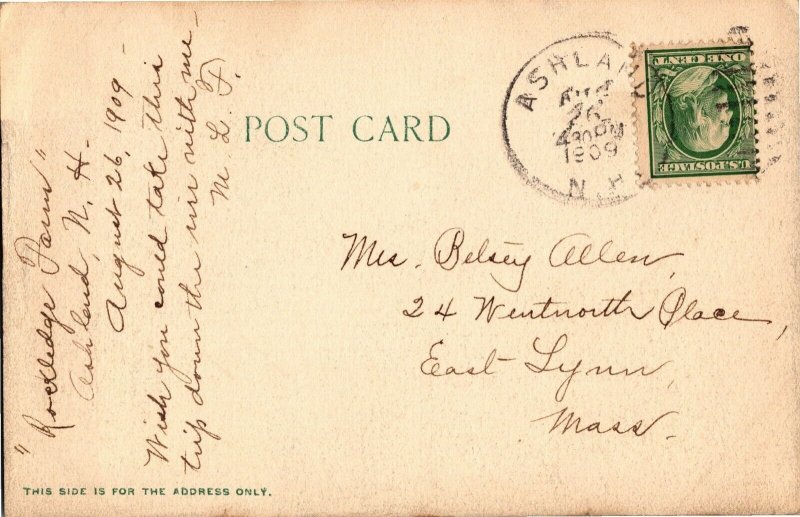 "Rockledge Farm"
Ashland, N. H.
August 26, 1909 -
Wish you could take this
trip down the riv with me -
M. L. F.
POST CARD
ASHLAND
AUG
26
30 PM
1909
N.H.
U.S. POSTAGE
ONE CENT
Mrs. Betsey Allen,
24 Wentworth Place,
East Lynn,
Mass.
THIS SIDE IS FOR THE ADDRESS ONLY.